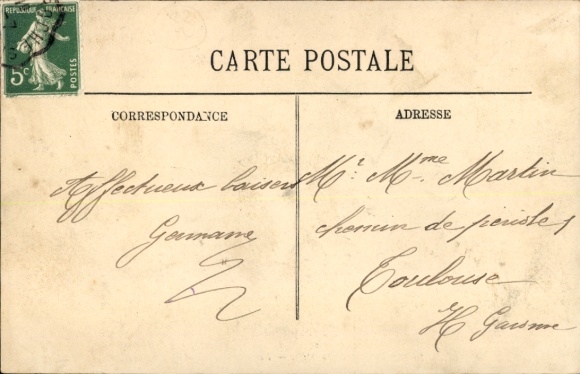 REPUBLIQUE FRANÇAISE
5c
POSTES
CARTE POSTALE
CORRESPONDANCE
ADRESSE
Affectueux baisers
Germaine
Mr. Mme Martin
chemin de
Toulouse
H Garonne